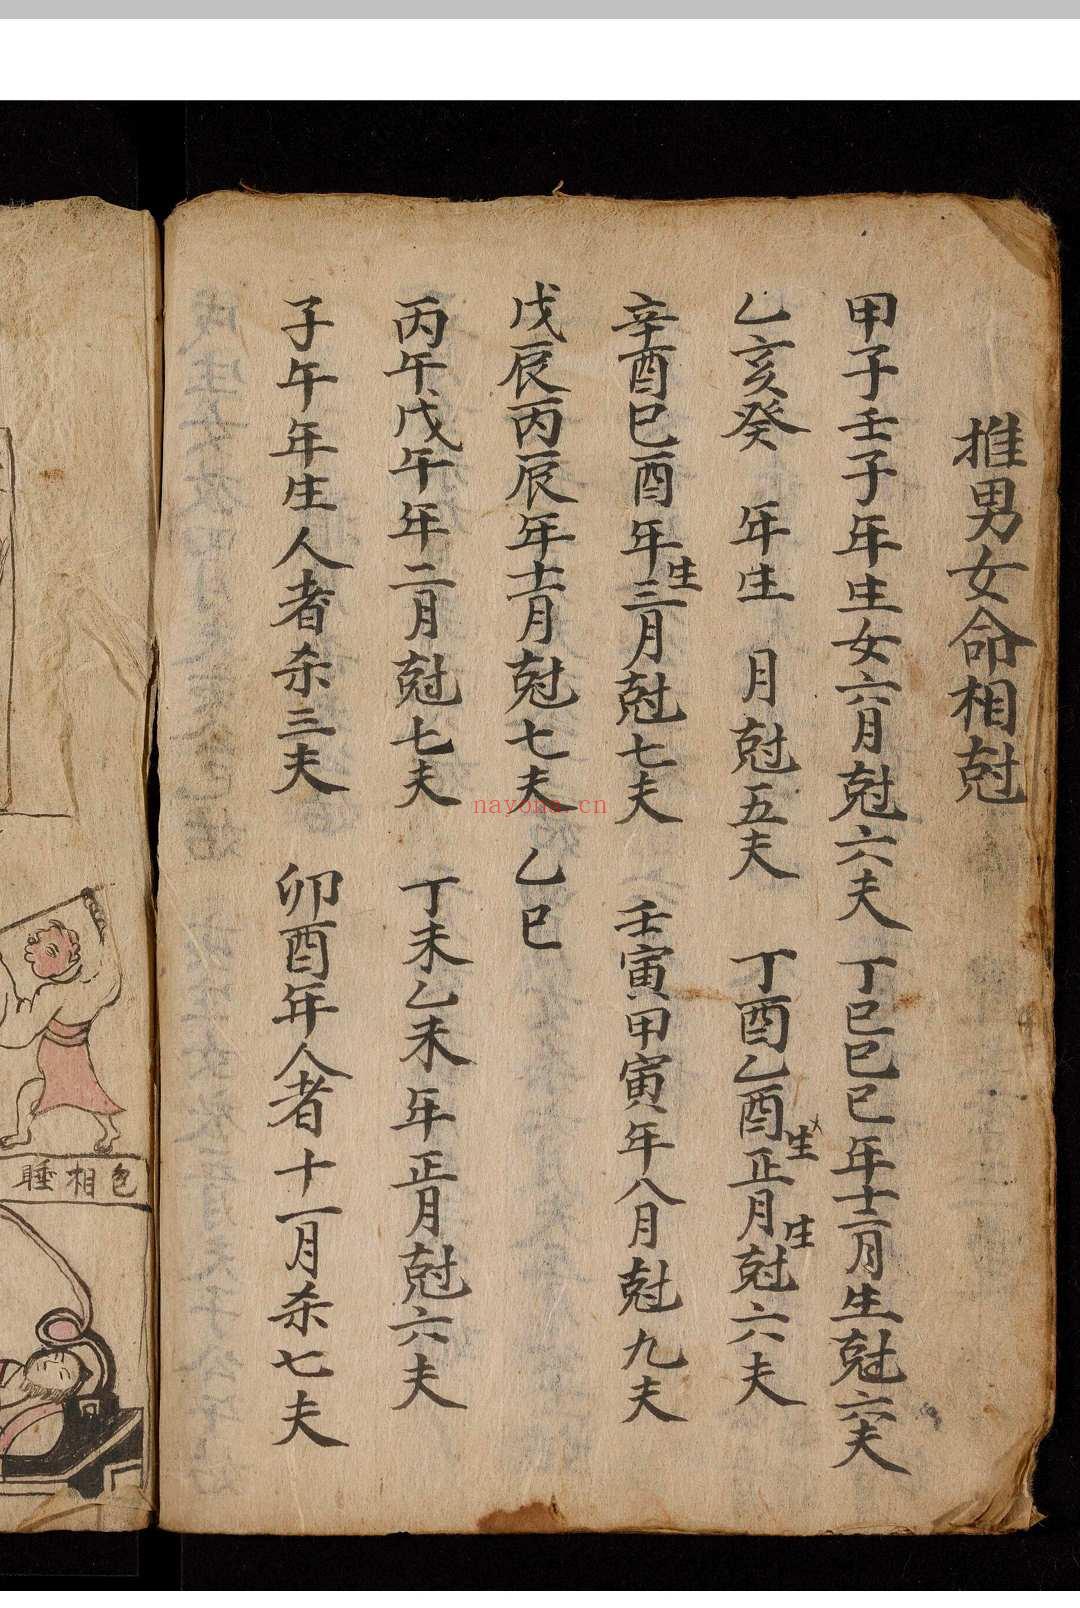 推男女命相尅
甲子壬子年生女六月尅六夫 丁巳巳巳年十二月生尅六夫
乙亥癸 年生 月尅五夫 丁酉乙酉生正月生尅六夫
辛酉巳酉年生三月尅七夫 壬寅甲寅年八月尅九夫
戊辰丙辰年十二月尅七夫 乙巳
丙午戊午年二月尅七夫 丁未乙未年正月尅六夫
子午年生人者杀三夫 卯酉年人者十一月杀七夫
色相睡
nayona.cn